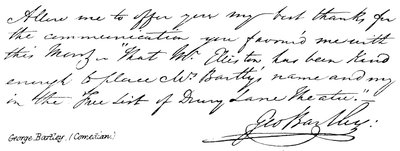 Allow me to offer you my best thanks for
the communication you favor'd me with
this Morng. "That Mr. Elliston has been kind
enough to place Mrs. Bartley's name and my
in the "Free List of Drury Lane Theatre."
Geo Bartley:
George Bartley. (Comedian)